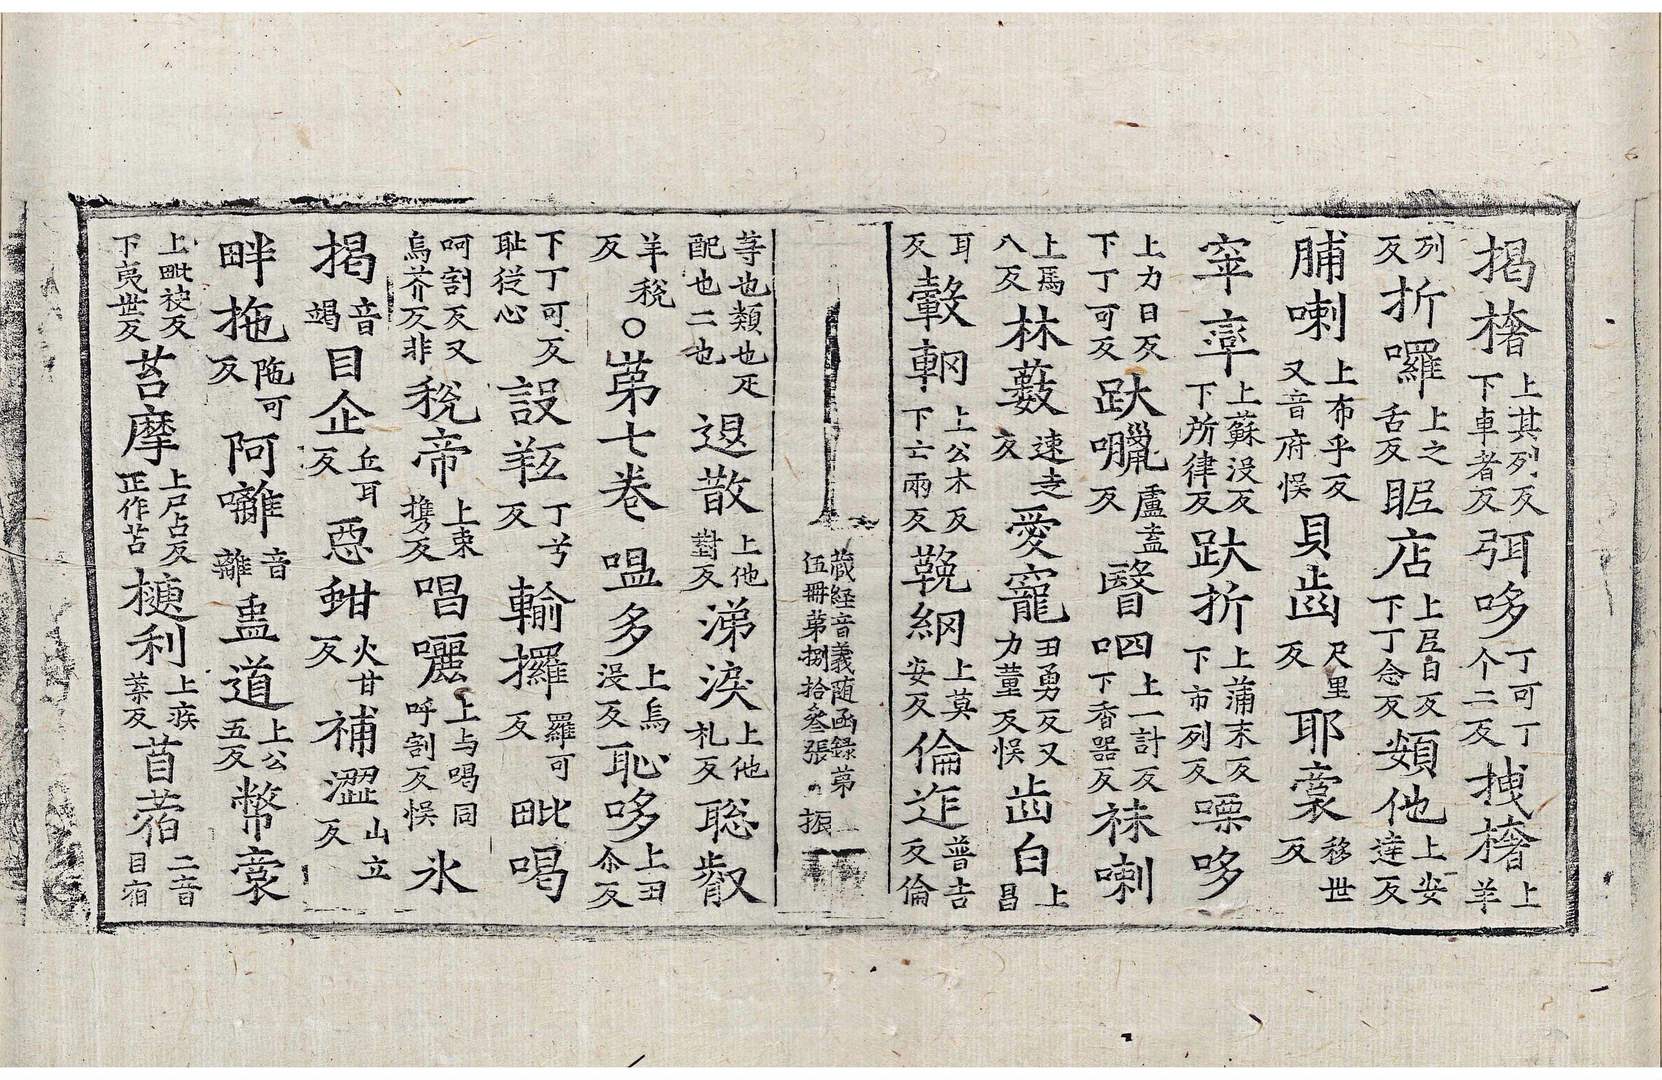 揭㯰上其列反下車者反弭哆丁可丁个二反拽㯰上羊
列反折囉上之舌反䀼店上𡰱自反下丁念反頞他上安達反
脯喇上布乎反又音府悮貝齒尺里反耶裳移世反
窣𡩬上蘇没反下所律反趺折上蒲末反下市列反嘌哆
上力日反下丁可反趺囇盧盍反瞖呬上一計反下香器反袜喇
上焉八反林藪速走反愛寵丑勇反又力董反悮齒白上昌
耳反轂輞上公木反下亡兩反鞔網上莫安反倫迮普告反倫
藏經音義随函録第
伍冊第捌拾叄張 振
等也類也疋配也二也退散上他對反涕淚上他札反聡叡
羊稅反〇第七卷嗢多上烏没反恥哆上丑尒反
下丁可反耻從心設羝丁兮反輸㰁羅可反毗喝
呵割反又烏芥反非稅帝上束攜反唱囇上与喝同呼割反悮氷
揭音竭目企丘耳反𢙣蚶火甘反補澀山立反
畔拖陁可反阿囄音離蛊道上公五反幣裳
上毗袂反下夷世反苫摩上尸占反正作苫㮨利上㾱葉反苜蓿二音目宿